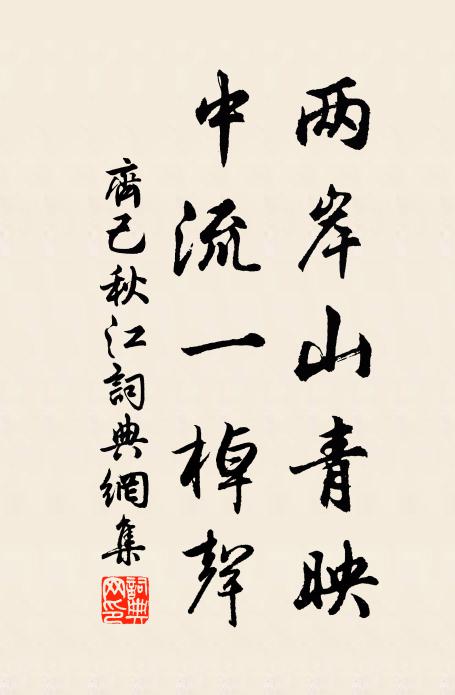 两岸山青映
中流一棹聲
齊己秋江詞典網集
詞典网印